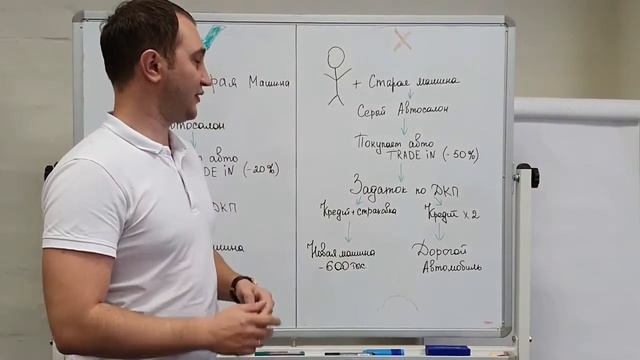 рая Машина
втосалон
авто
DE iN (-20%)
ДКП
шина
+ Старая машина
Серый Автосалон
Покупает авто
TRADE iN (-50%)
Задаток по ДКП
Кредит+страховка
Кредит x 2
Новая машина
-600 тыс
Дорогой
Автомобиль